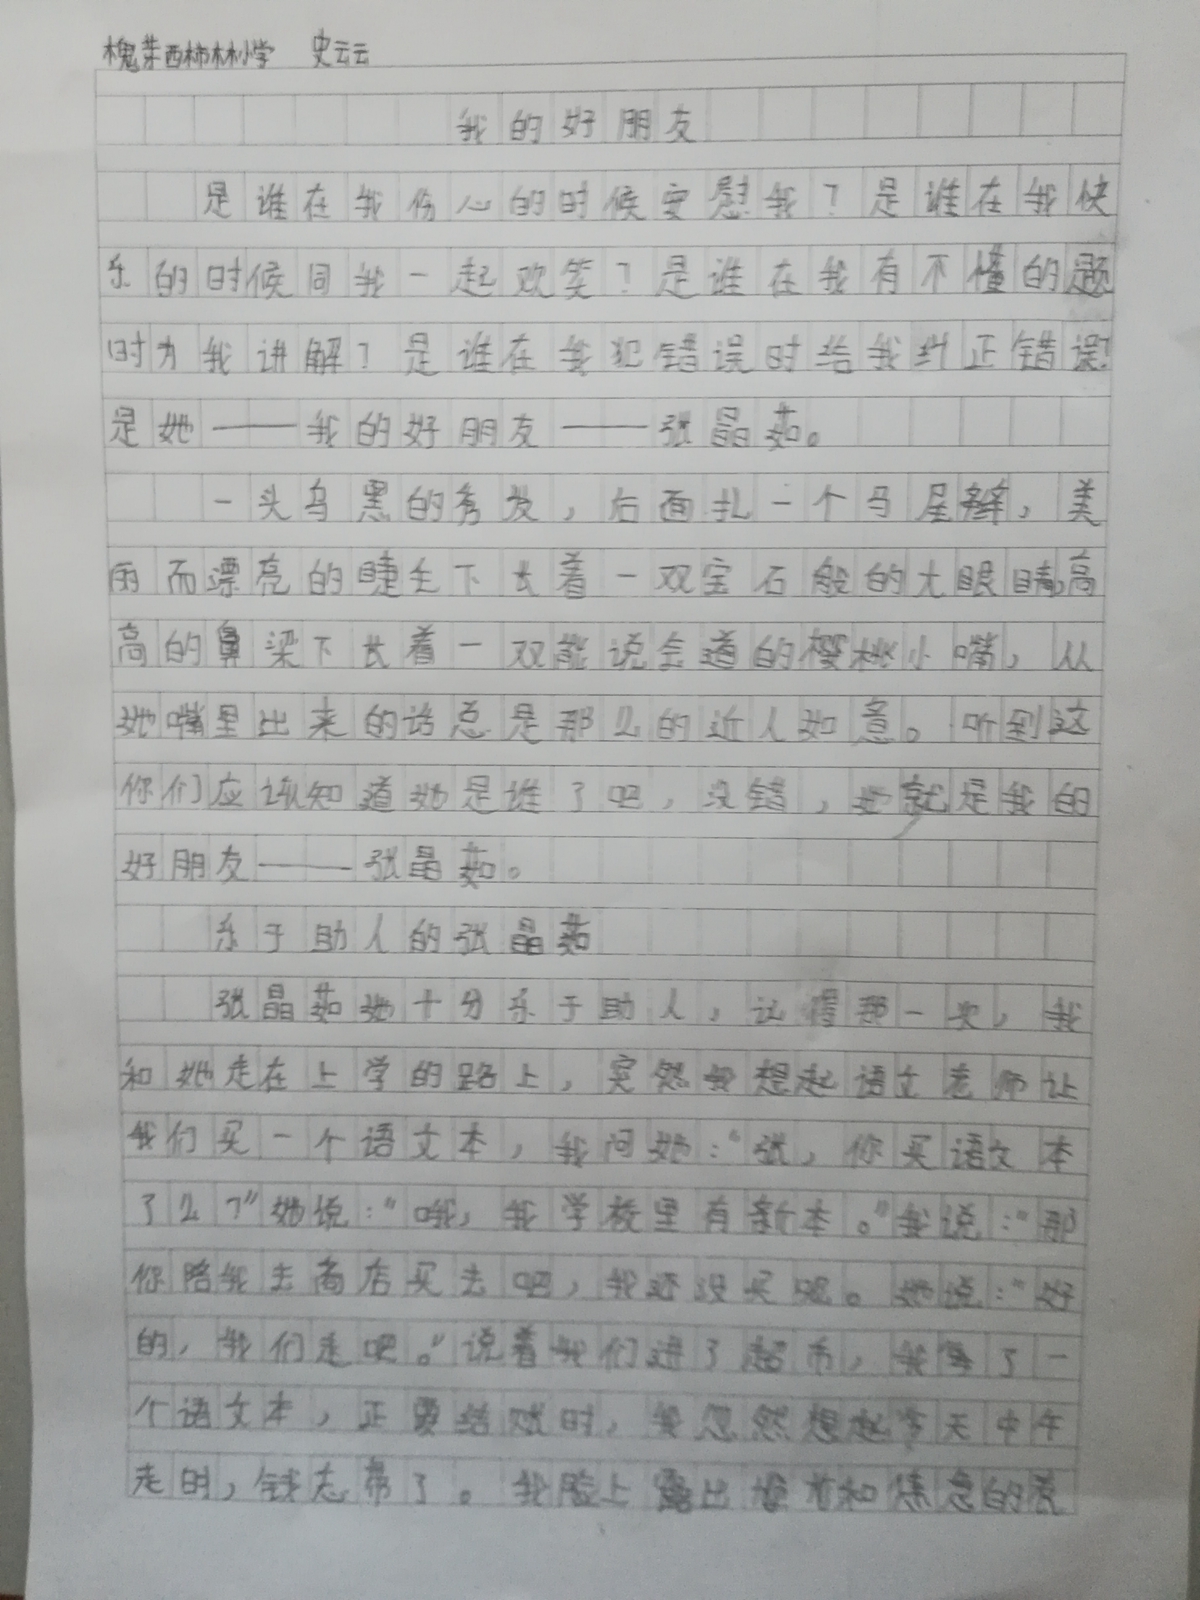 槐芽西柿林小学 史云云
我的好朋友
是谁在我伤心的时候安慰我？是谁在我快
乐的时候同我一起欢笑？是谁在我有不懂的题
时为我讲解？是谁在我犯错误时给我纠正错误？
是她——我的好朋友——张晶茹。
一头乌黑的秀发，后面扎一个马尾辫，美
丽而漂亮的睫毛下长着一双宝石般的大眼睛，高
高的鼻梁下长着一双能说会道的樱桃小嘴，从
她嘴里出来的话总是那么的近人如意。听到这
你们应该知道她是谁了吧，没错，她就是我的
好朋友——张晶茹。
乐于助人的张晶茹
张晶茹她十分乐于助人，记得那一次，我
和她走在上学的路上，突然我想起语文老师让
我们买一个语文本，我问她：“张，你买语文本
了么？”她说：“哦，我学校里有新本。”我说：“那
你陪我去商店买去吧，我还没买呢。她说：“好
的，我们走吧。”说着我们进了超市，我拿了一
个语文本，正要结账时，我忽然想起今天中午
走的，钱忘带了。我脸上露出 和焦急的